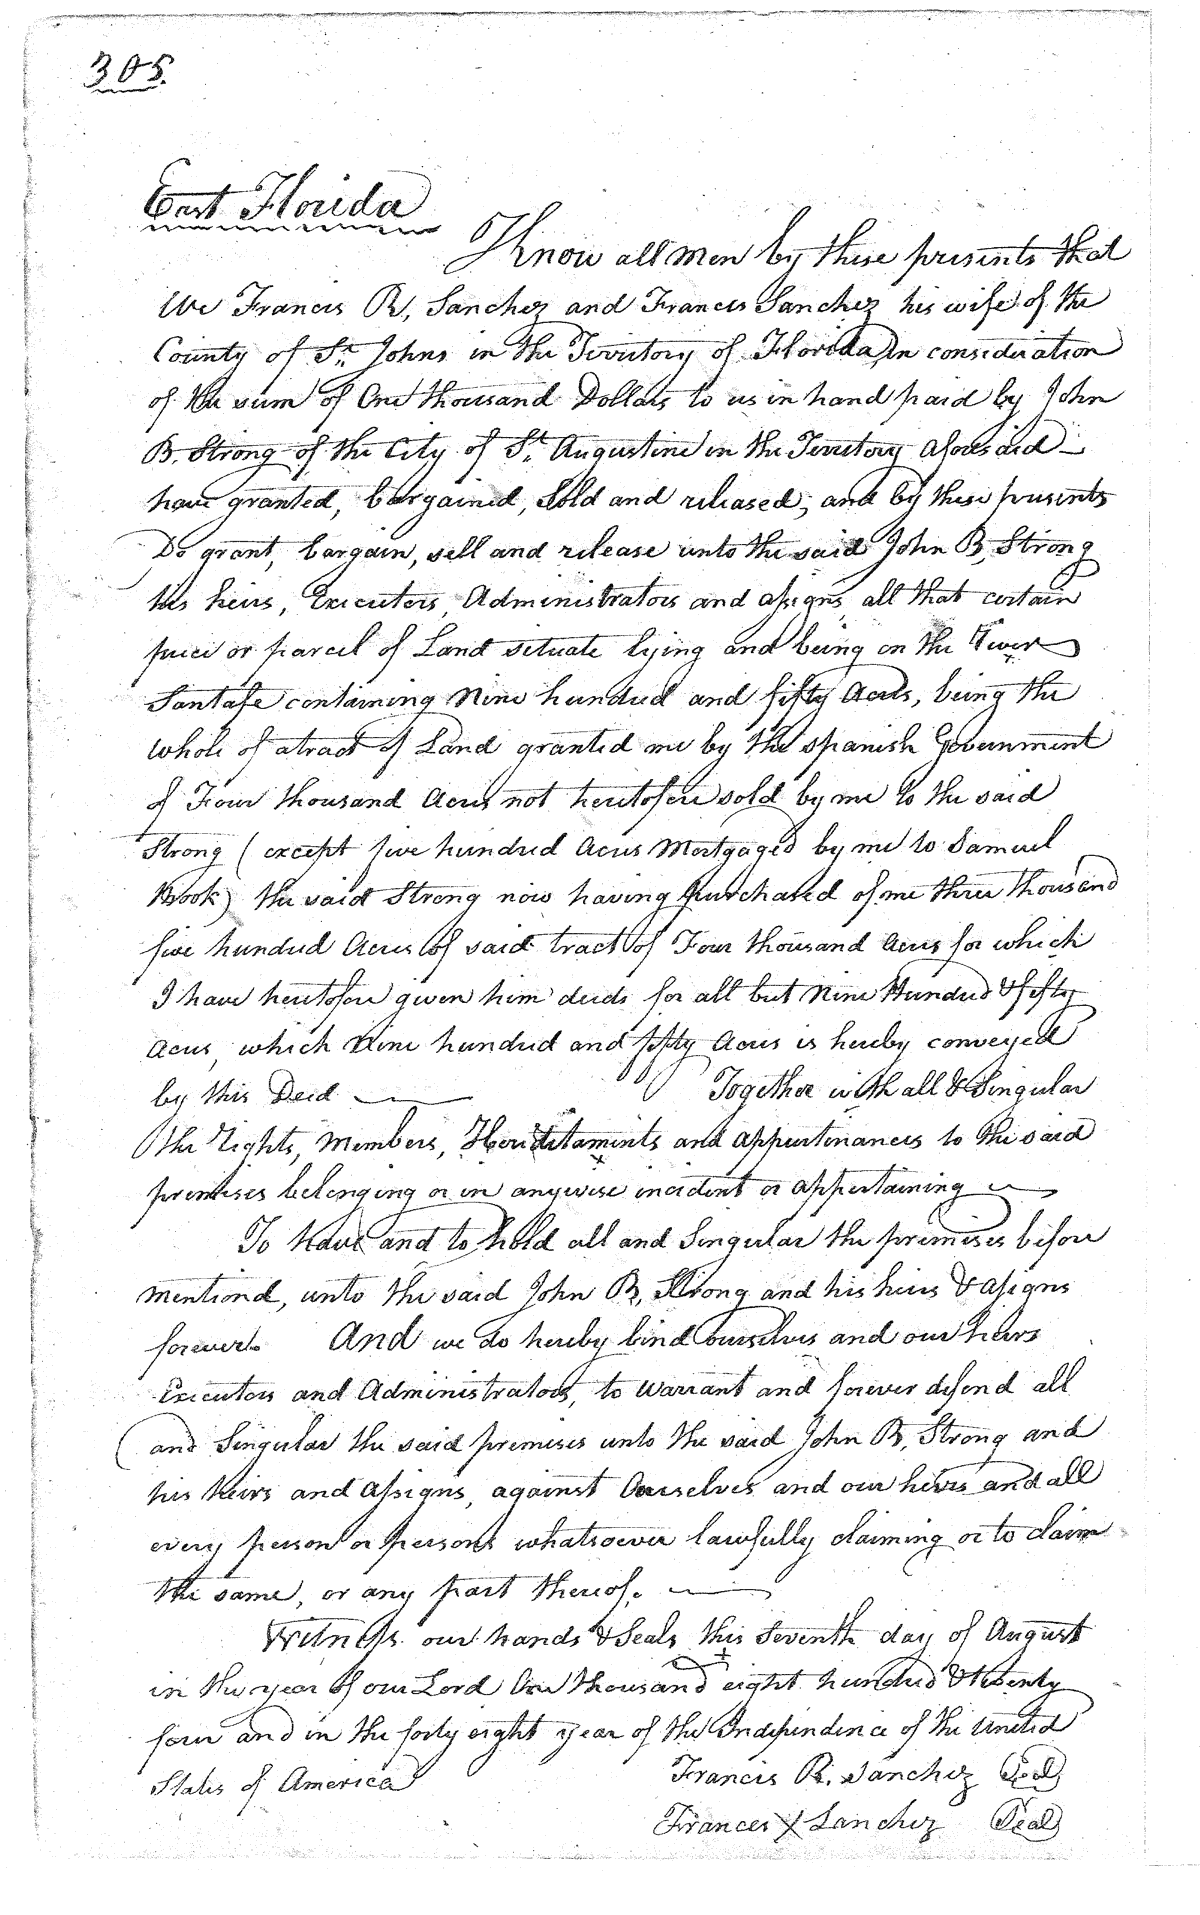 305.
East Florida
Know all men by these presents that
We Francis R, Sanchez and Francis Sanchez his wife of the
County of St. Johns in the Territory of Florida, in consideration
of the sum of One thousand Dollars to us in hand paid by John
B. Strong of the City of St. Augustine in the Territory aforesaid
have granted, bargained, sold and released; and by these presents
Do grant, bargain, sell and release unto the said John B, Strong
his heirs, Executors, Administrators and assigns, all that certain
piece or parcel of Land situate lying and being on the River
Santafe containing Nine hundred and fifty Acres, being the
whole of a tract of Land granted me by the Spanish Government
of Four thousand Acres not heretofore sold by me to the said
Strong (except five hundred Acres Mortgaged by me to Samuel
Brook) the said Strong now having purchased of me three thousand
five hundred Acres of said tract of Four thousand Acres for which
I have heretofore given him deeds for all but Nine Hundred & fifty
Acres, which Nine hundred and fifty Acres is hereby conveyed
by this Deed Together with all & Singular
the Rights, Members, Hereditaments and appurtenances to the said
premises belonging or in anywise incident or appertaining
To have and to hold all and Singular the premises before
mentiond, unto the said John B, Strong and his heirs & assigns
forever. And we do hereby bind ourselves and our heirs
Executors and Administrators, to Warrant and forever defend all
and Singular the said premises unto the said John B, Strong and
his heirs and Assigns, against Ourselves and our heirs and all
every person or persons whatsoever lawfully claiming or to claim
the same, or any part thereof.
Witness our hands & Seals this Seventh day of August
in the year of our Lord One thousand eight hundred & twenty
four and in the forty eight year of the Independence of the United
States of America
Francis R. Sanchez Seal
Frances X Sanchez Seal